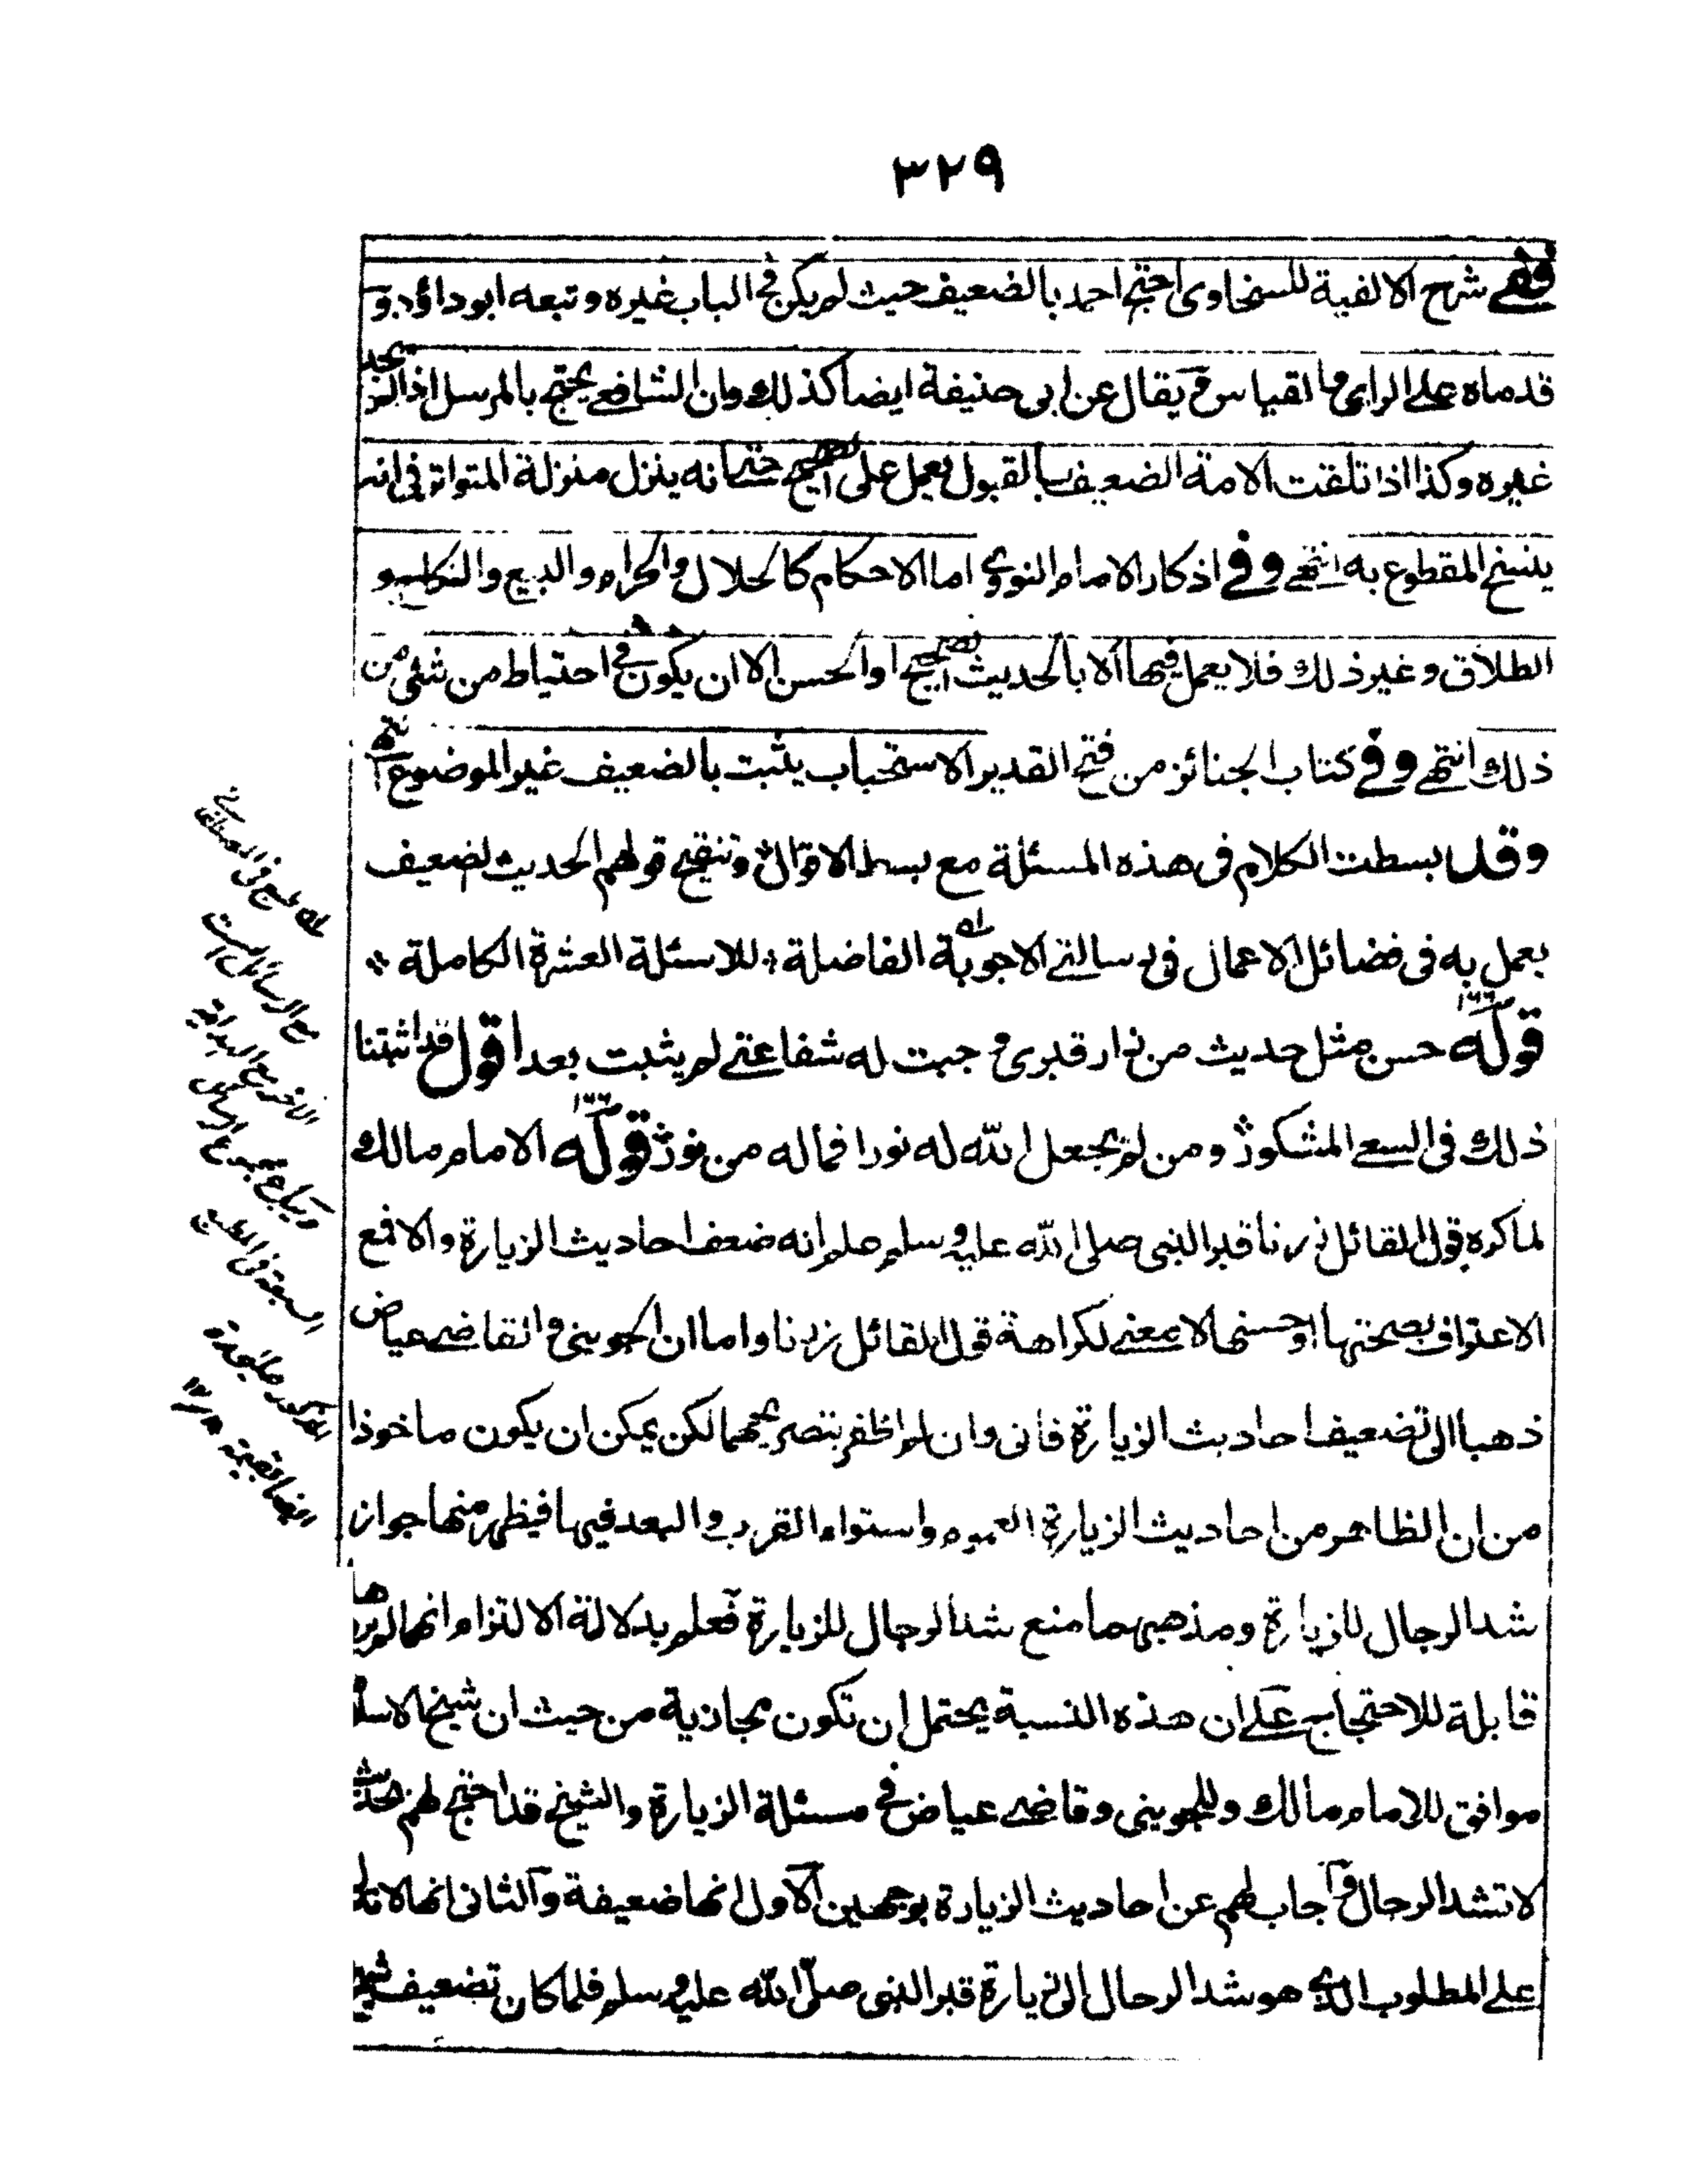 ٣٢٩
ففي شرح الالفية للسخاوى احتج احمد بالضعيف حيث لم يكن فى الباب غيره وتبعه ابوداؤد و
قدماه على الراى والقياس ويقال عن ابى حنيفة ايضا كذلك وان الشافعى يحتج بالمرسل اذا لم يجد
غيره وكذا اذا تلقت الامة الضعيف بالقبول يعمل على الصحيح حتى انه ينزل منزلة المتواتر فى انه
ينسخ المقطوع به انتهى وفى اذكار الامام النووى اما الاحكام كالحلال والحرام والبيع والنكاح و
الطلاق وغير ذلك فلا يعمل فيها الا بالحديث الصحيح او الحسن الا ان يكون فى احتياط من شئى من
ذلك انتهى وفى كتاب الجنائز من فتح القدير الاستحباب يثبت بالضعيف غير الموضوع انتهى
وقد بسطت الكلام فى هذه المسئلة مع بسط الاقوال وتنقيح قولهم الحديث الضعيف
يعمل به فى فضائل الاعمال فى رسالتى الاجوبة الفاضلة للاسئلة العشرة الكاملة
قوله ص١٦٦ حسن مثل حديث من زار قبرى وجبت له شفاعتى لم يثبت بعد اقول قد اثبتنا
ذلك فى السعى المشكور ومن لم يجعل الله له نورا فما له من نور قوله ص١٦٦ الامام مالك
لما كره قول القائل زرنا قبر النبى صلى الله عليه وسلم علم انه ضعف احاديث الزيارة والا فمع
الاعتراف بصحتها او حسنها لا معنى لكراهة قول القائل زرنا واما ان الجوينى والقاضى عياض
ذهبا الى تضعيف احاديث الزيارة فانى وان لم اظفر بتصريحهما لكن يمكن ان يكون ماخوذا
من ان الظاهر من احاديث الزيارة العموم واستواء القرب والبعد فيها فيظهر منها جواز
شد الرحال للزيارة ومذهبهما منع شد الرحال للزيارة فعلم بدلالة الالتزام انهما لم يرياها
قابلة للاحتجاج على ان هذه النسبة يحتمل ان تكون مجازية من حيث ان شيخ الاسلام
موافق للامام مالك وللجوينى وقاضى عياض فى مسئلة الزيارة والشيخ قد احتج لهم بحديث
لا تشد الرحال واجاب لهم عن احاديث الزيارة بوجهين الاول انها ضعيفة والثانى انها لا تدل
على المطلوب الذى هو شد الرحال الى زيارة قبر النبى صلى الله عليه وسلم فلما كان تضعيف شيخ